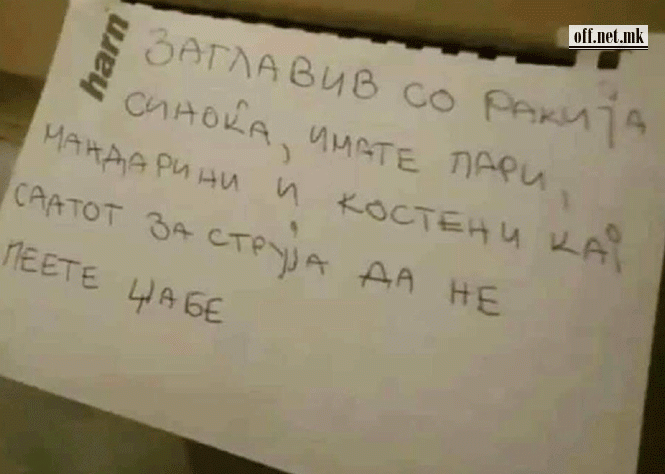 off.net.mk
harn
ЗАГЛАВИВ СО РАКИЈА
СИНОЌА, ИМАТЕ ПАРИ,
МАНДАРИНИ И КОСТЕНИ КАЈ
СААТОТ ЗА СТРУЈА ДА НЕ
ПЕЕТЕ ЏАБЕ